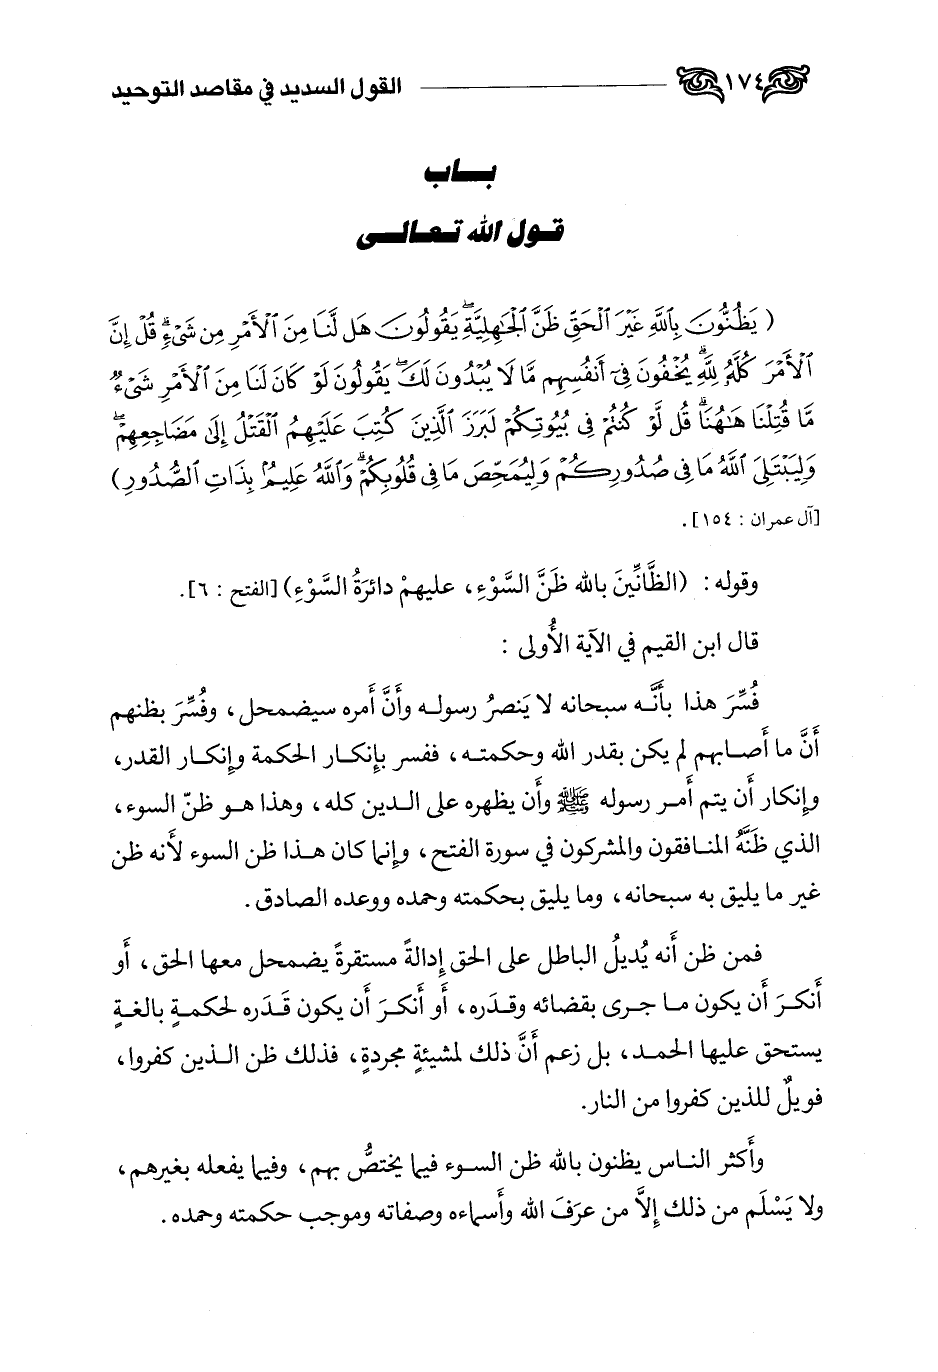 ١٧٤ القول السديد في مقاصد التوحيد
بـــاب
قـول الله تـعـالـــى
﴿ يَظُنُّونَ بِاللَّهِ غَيْرَ الْحَقِّ ظَنَّ الْجَاهِلِيَّةِ ۖ يَقُولُونَ هَل لَّنَا مِنَ الْأَمْرِ مِن شَيْءٍ ۗ قُلْ إِنَّ
الْأَمْرَ كُلَّهُ لِلَّهِ ۗ يُخْفُونَ فِي أَنفُسِهِم مَّا لَا يُبْدُونَ لَكَ ۖ يَقُولُونَ لَوْ كَانَ لَنَا مِنَ الْأَمْرِ شَيْءٌ
مَّا قُتِلْنَا هَاهُنَا ۗ قُل لَّوْ كُنتُمْ فِي بُيُوتِكُمْ لَبَرَزَ الَّذِينَ كُتِبَ عَلَيْهِمُ الْقَتْلُ إِلَىٰ مَضَاجِعِهِمْ ۖ
وَلِيَبْتَلِيَ اللَّهُ مَا فِي صُدُورِكُمْ وَلِيُمَحِّصَ مَا فِي قُلُوبِكُمْ ۗ وَاللَّهُ عَلِيمٌ بِذَاتِ الصُّدُورِ ﴾
[آل عمران : ١٥٤] .
وقوله : (الظَّانِّينَ بالله ظَنَّ السَّوْءِ ، عليهمْ دائرَةُ السَّوْءِ) [الفتح : ٦] .
قال ابن القيم في الآية الأُولى :
فُسِّرَ هذا بأَنَّه سبحانه لا يَنصرُ رسوله وأَنَّ أَمره سيضمحل ، وفُسِّرَ بظنهم
أَنَّ ما أَصابهم لم يكن بقدر الله وحكمته ، ففسر بإنكار الحكمة وإنكار القدر ،
وإنكار أَن يتم أَمر رسوله ﷺ وأَن يظهره على الدين كله ، وهذا هو ظنّ السوء ،
الذي ظَنَّهُ المنافقون والمشركون في سورة الفتح ، وإنما كان هذا ظن السوء لأَنه ظن
غير ما يليق به سبحانه ، وما يليق بحكمته وحمده ووعده الصادق .
فمن ظن أَنه يُديلُ الباطل على الحق إدالةً مستقرةً يضمحل معها الحق ، أَو
أَنكرَ أَن يكون ما جرى بقضائه وقدَره ، أَو أَنكرَ أَن يكون قَدَره لحكمةٍ بالغةٍ
يستحق عليها الحمد ، بل زعم أَنَّ ذلك لمشيئةٍ مجردةٍ ، فذلك ظن الذين كفروا ،
فويلٌ للذين كفروا من النار .
وأَكثر الناس يظنون بالله ظن السوء فيما يختصُّ بهم ، وفيما يفعله بغيرهم ،
ولا يَسْلَم من ذلك إلاَّ من عرَفَ الله وأسماءه وصفاته وموجب حكمته وحمده .